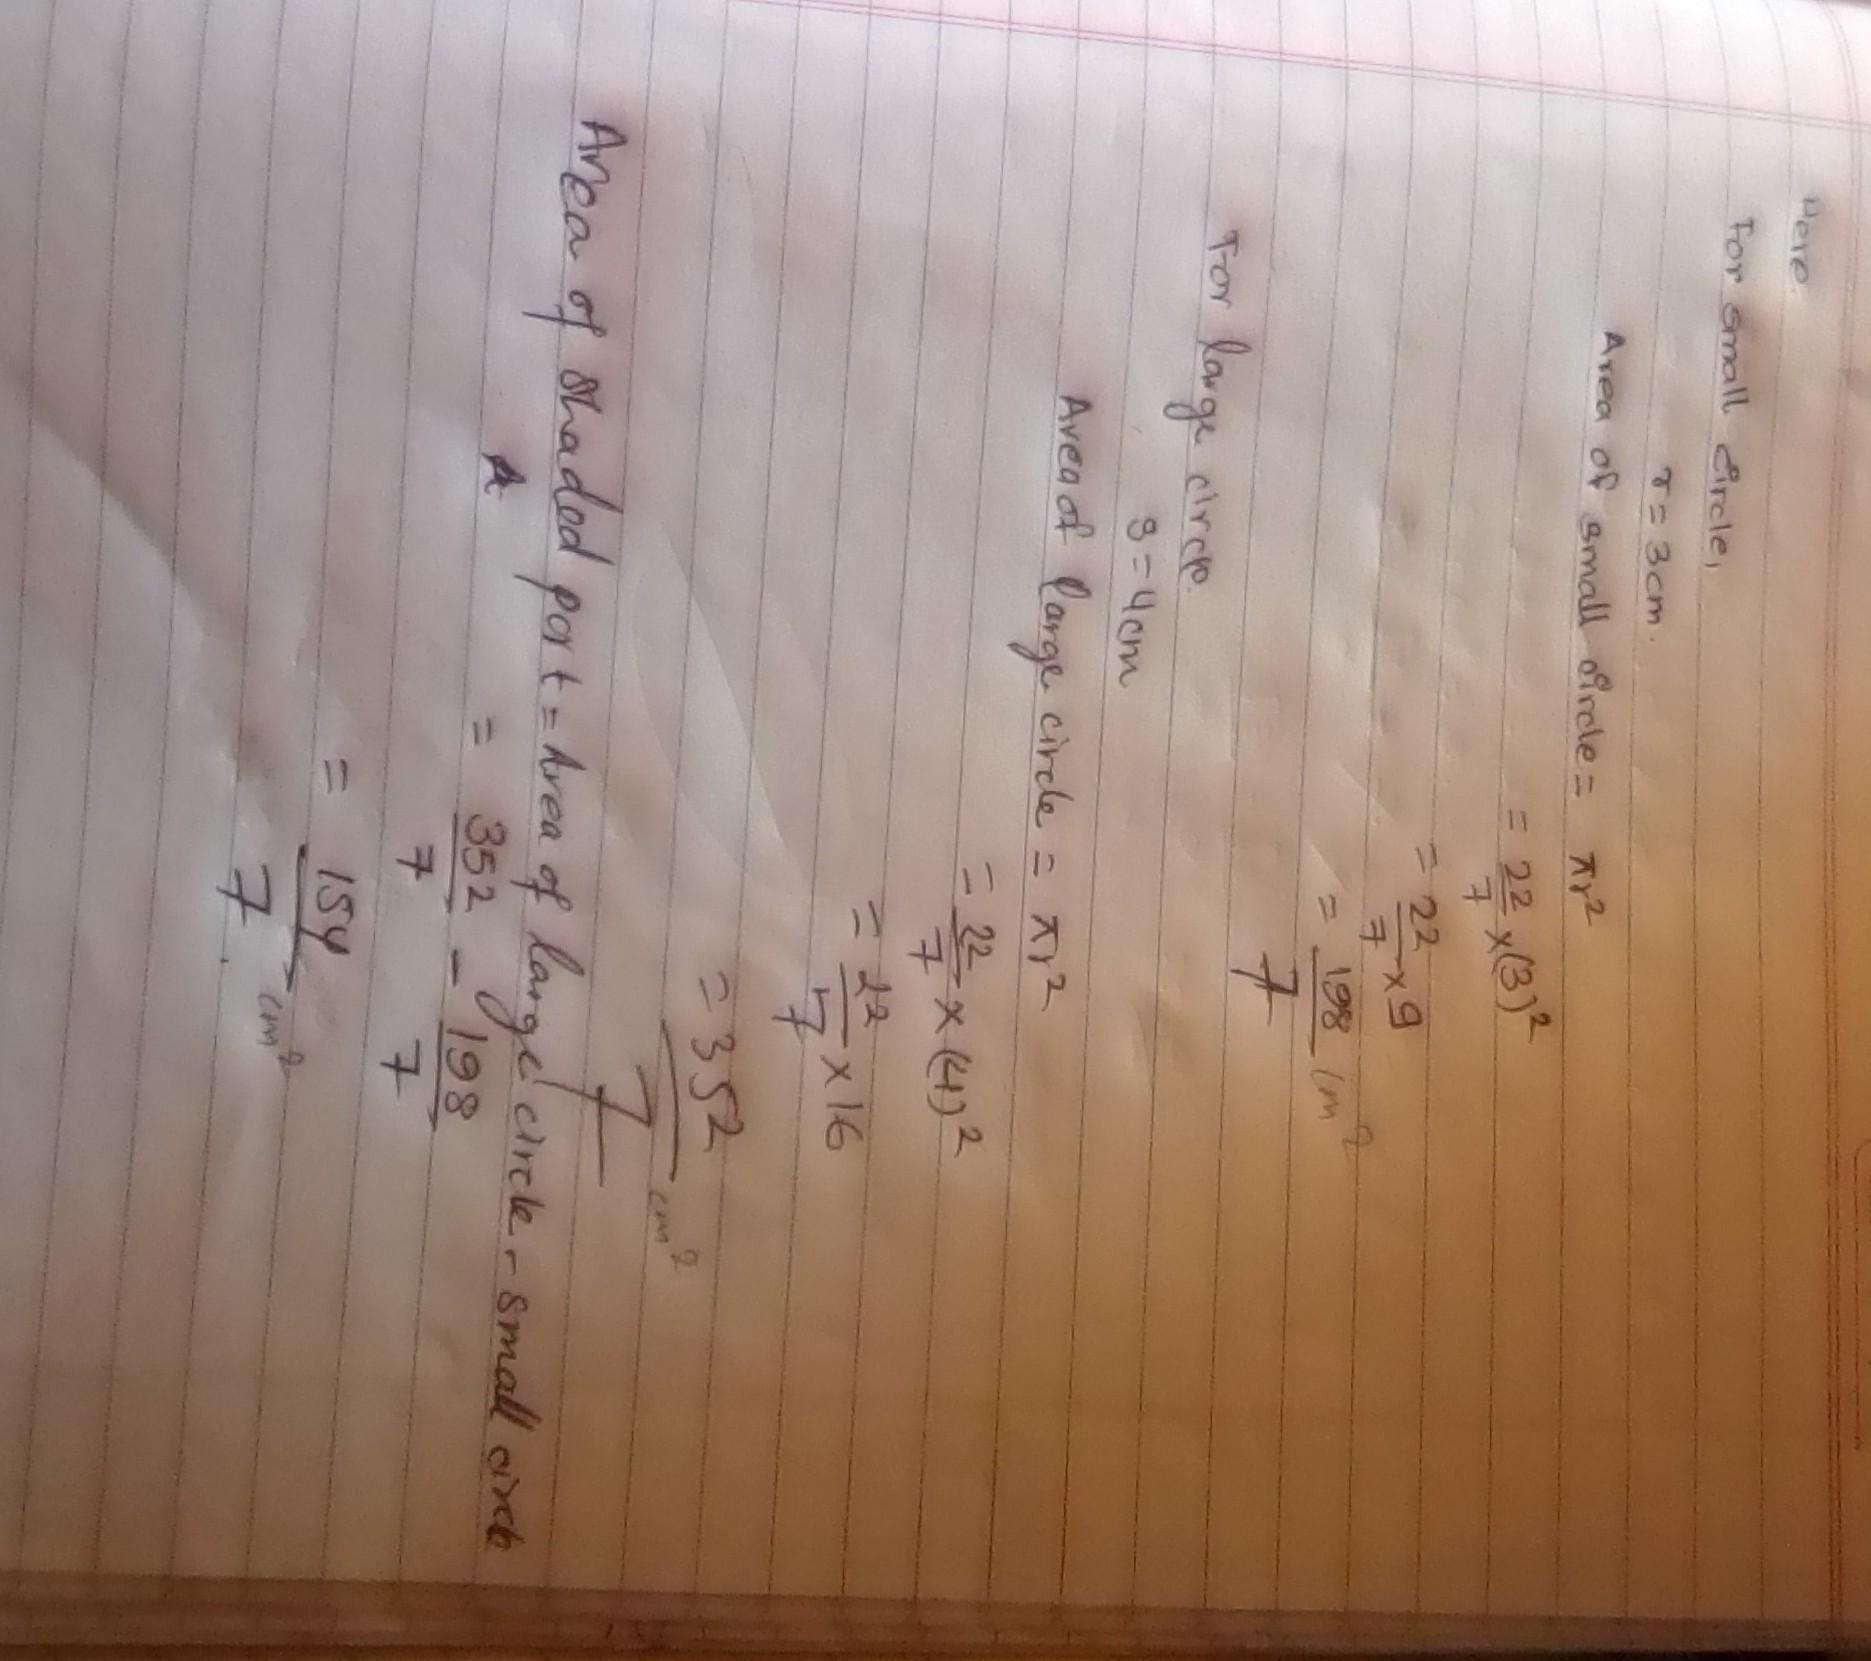 Here.
For small circle,
r = 3cm.
Area of small circle = πr²
= 22/7 × (3)²
= 22/7 × 9
= 198/7 cm²
For large circle.
r = 4cm
Area of large circle = πr²
= 22/7 × (4)²
= 22/7 × 16
= 352/7 cm²
Area of shaded part = Area of large circle - small circle
= 352/7 - 198/7
= 154/7 cm²